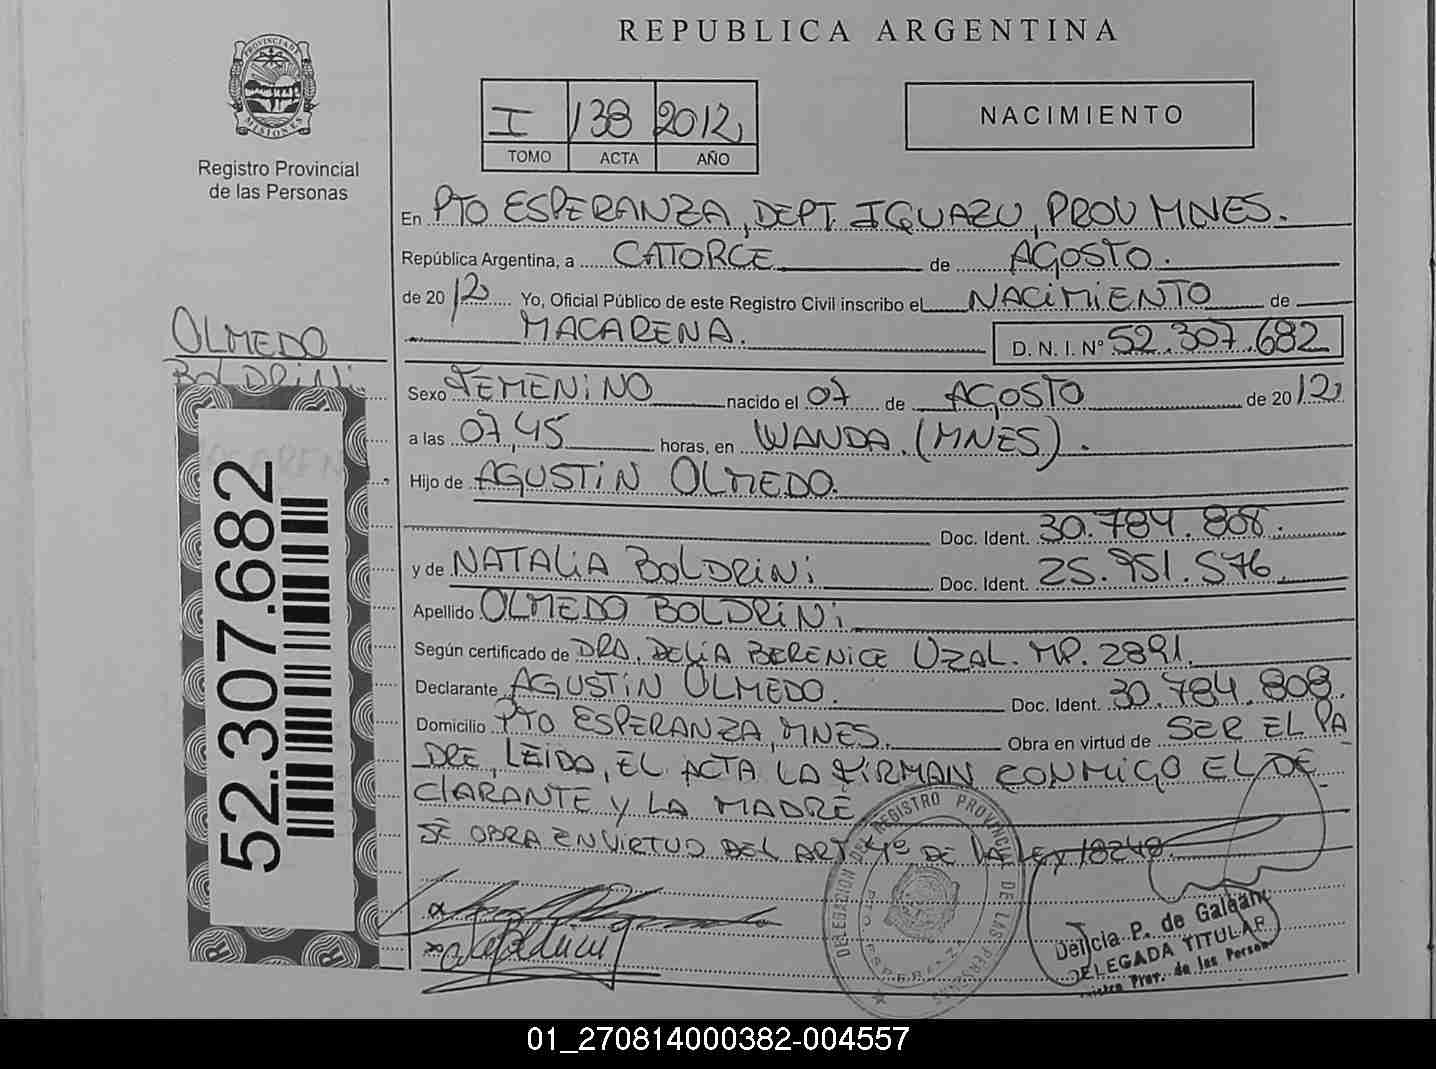 REPUBLICA ARGENTINA
PROVINCIA DE MISIONES
Registro Provincial
de las Personas
I 138 2012
TOMO ACTA AÑO
NACIMIENTO
En PTO ESPERANZA, DEPT. IGUAZU, PROV MNES.
República Argentina, a CATORCE de AGOSTO.
de 2012 Yo, Oficial Público de este Registro Civil inscribo el NACIMIENTO de
MACARENA. D. N. I. Nº 52.307.682
OLMEDO
BOLDRINI
52.307.682
Sexo FEMENINO nacido el 07 de AGOSTO de 2012
a las 07,45 horas, en WANDA. (MNES).
Hijo de AGUSTIN OLMEDO.
Doc. Ident. 30.784.808.
y de NATALIA BOLDRINI Doc. Ident. 25.951.576
Apellido OLMEDO BOLDRINI
Según certificado de DRA. DELIA BERENICE UZAL. MP. 2891.
Declarante AGUSTIN OLMEDO. Doc. Ident. 30.784.808.
Domicilio PTO ESPERANZA, MNES. Obra en virtud de SER EL PA
DRE, LEIDO, EL ACTA LA FIRMAN CONMIGO EL DE
CLARANTE Y LA MADRE
SE OBRA EN VIRTUD DEL ART 4º DE LA LEY 18248.
DELEGACION DEL REGISTRO PROVINCIAL DE LAS PERSONAS
PTO ESPERANZA
Delicia P. de Galeano
DELEGADA TITULAR
Prov. de las Person
01_270814000382-004557